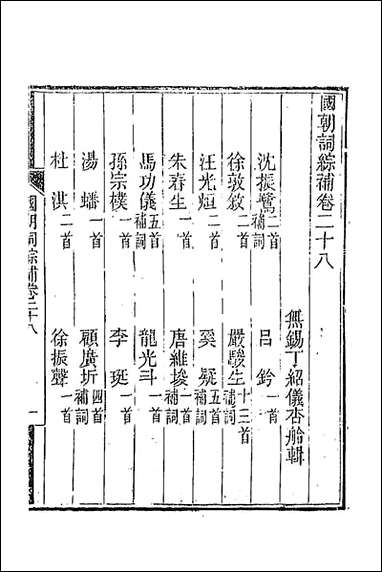 國朝詞綜補卷二十八
無錫丁紹儀杏舲輯
沈振鷺二首補詞　呂鈐一首
徐敦敘二首　嚴駿生十三首補詞
汪光烜二首　奚疑五首補詞
朱春生一首　唐維埈一首補詞
馬功儀五首補詞　龍光斗一首
孫宗樸一首　李珽一首
湯蟠一首　顧廣圻四首補詞
杜淇二首　徐振聲一首
國朝詞綜補卷二十八　一